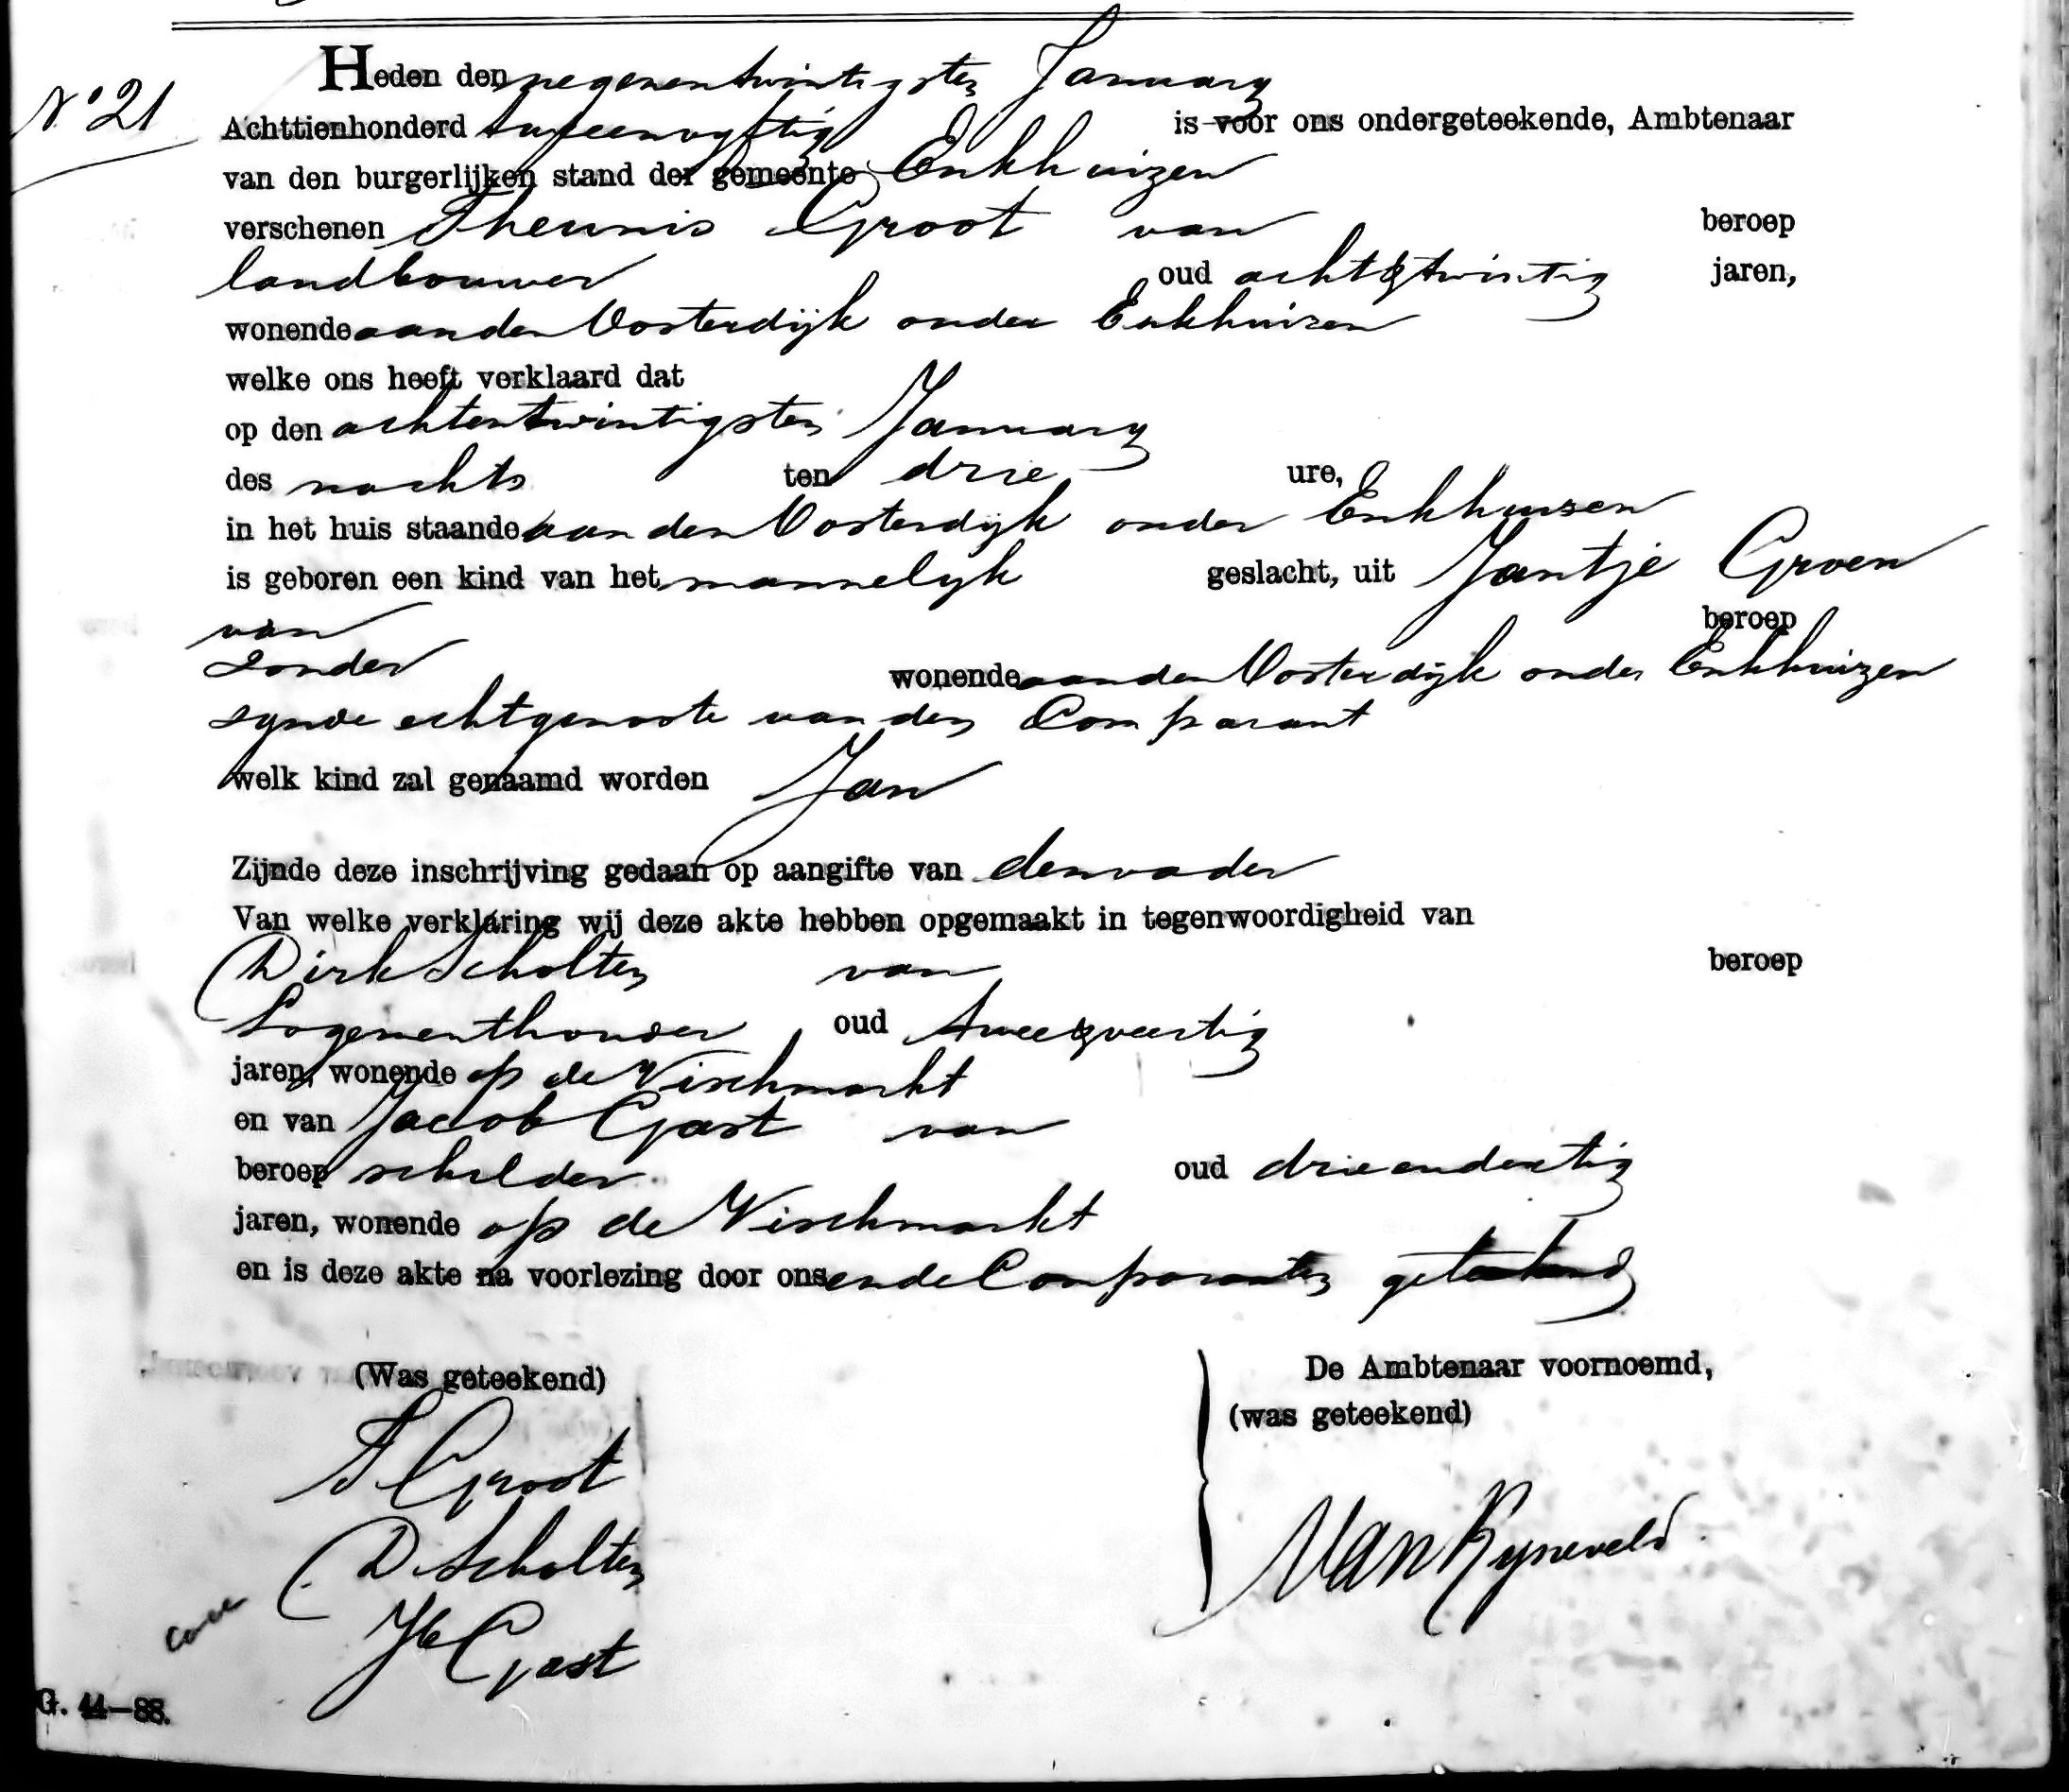 No 21
Heden den negenentwintigsten January
Achttienhonderd tweeenvyftig is voor ons ondergeteekende, Ambtenaar
van den burgerlijken stand der gemeente Enkhuizen
verschenen Theunis Groot van beroep
landbouwer oud acht&twintig jaren,
wonende aan den Oosterdijk onder Enkhuizen
welke ons heeft verklaard dat
op den achtentwintigsten January
des nachts ten drie ure,
in het huis staande aan den Oosterdijk onder Enkhuisen
is geboren een kind van het mannelyk geslacht, uit Jantje Groen
van beroep
zonder wonende aan den Oosterdijk onder Enkhuizen
zynde echtgenoote van den Comparant
welk kind zal genaamd worden Jan
Zijnde deze inschrijving gedaan op aangifte van den vader
Van welke verklaring wij deze akte hebben opgemaakt in tegenwoordigheid van
Dirk Scholten van beroep
Logementhouder oud twee&veertig
jaren, wonende op de Vischmarkt
en van Jacob Gast van
beroep schilder oud drieendertig
jaren, wonende op de Vischmarkt
en is deze akte na voorlezing door ons en de Comparanten geteekend
(Was geteekend) De Ambtenaar voornoemd,
(was geteekend)
T Groot
D. Scholten
Jb Gast
Van Ryneveld
G. 44—88.